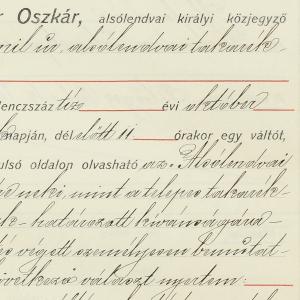 r Oszkár, alsólendvai királyi közjegyző
ril úr, alsólendvai takarék-
lenczszáz tíz évi október
napján, dél előtt 11 órakor egy váltót,
ulsó oldalon olvasható az „Alsólendvai
neki, mint a telepes takarék-
k- határozott kívánságára
végett személyesen bemutat-
vetkező választ nyertem: